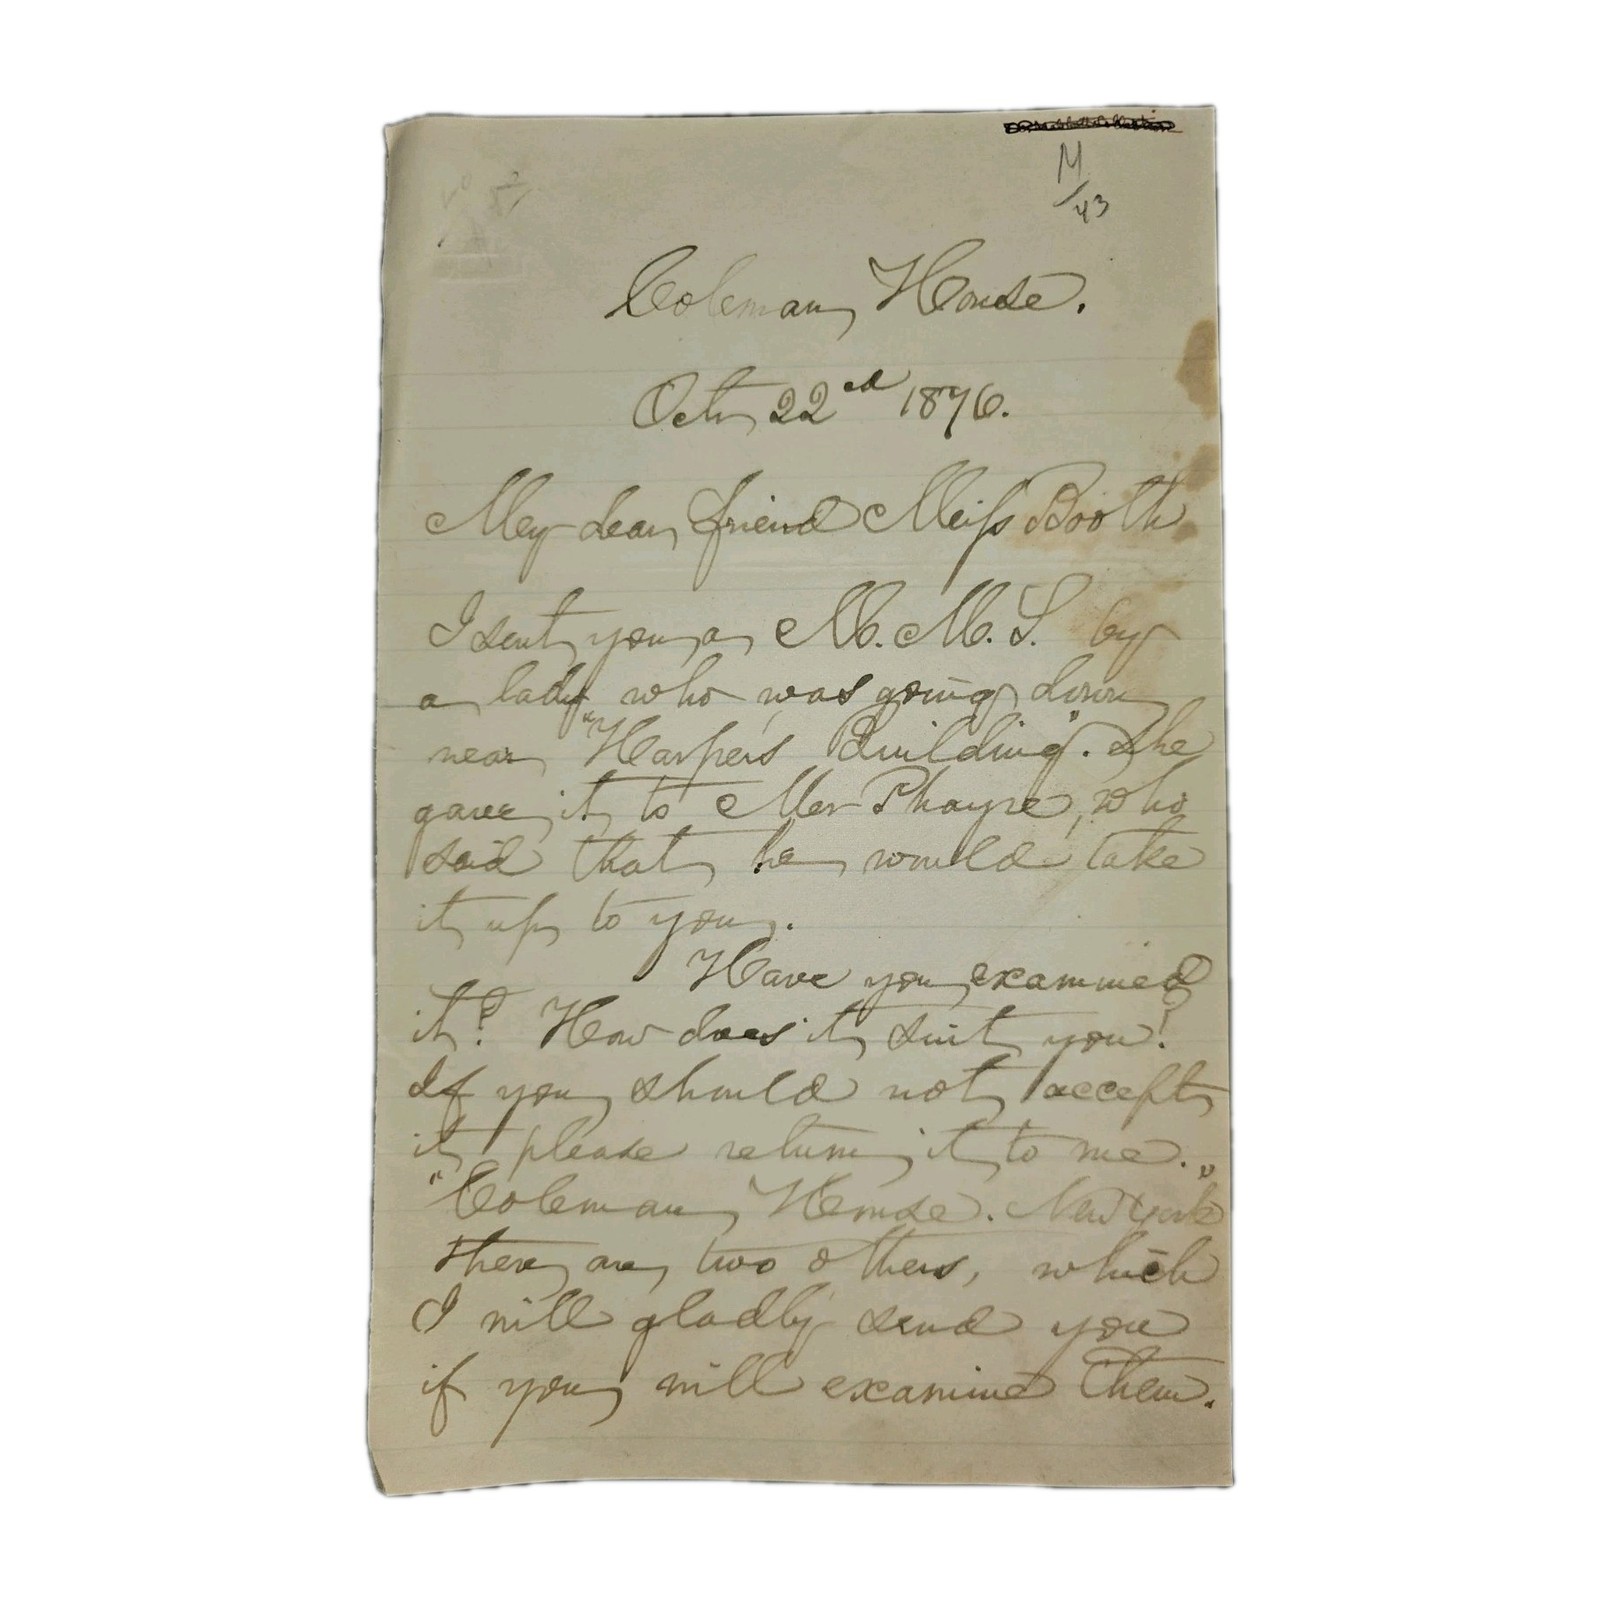 M
/43
Coleman House.
Oct 22nd 1876.
My dear friend Miss Booth
I sent you a M.M.S. by
a lady who was going down
near "Harper's Building". She
gave it to Mr Phayre, who
said that he would take
it up to you.
Have you examined
it? How does it suit you?
If you should not accept
it please return it to me.
"Coleman House. New York"
There are two others, which
I will gladly send you
if you will examine them.